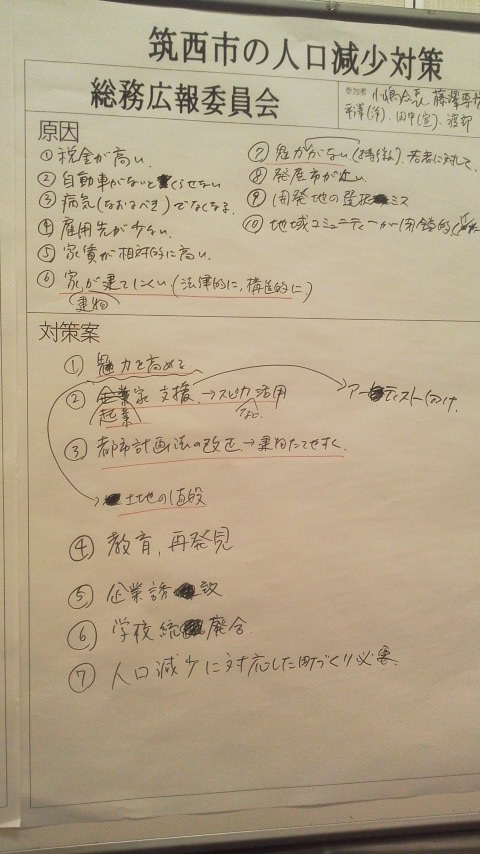 筑西市の人口減少対策
総務広報委員会
参加者 小嶋会長、藤澤専務
平澤(洋)、田中(宣)、渡部
原因
① 税金が高い、
② 自動車がないとくらせない
③ 病気(なおるべき)でなくなる
④ 雇用先が少ない、
⑤ 家賃が相対的に高い、
⑥ 家が建てにくい(法律的に、構造的に)
建物
⑦ 魅力がない(特徴)、若者に対して、
⑧ 発展市が近い、
⑨ 開発地の選択ミス
⑩ 地域コミュニティーが閉鎖的
対策案
① 魅力を高めて
② 家支援、→スピカ活用
起業
など
アーティスト向け、
③ 都市計画法の改正→建物たてやすく、
土地の値段
④ 教育、再発見
⑤ 企業誘致
⑥ 学校統廃合、
⑦ 人口減少に対応した町づくり必要、